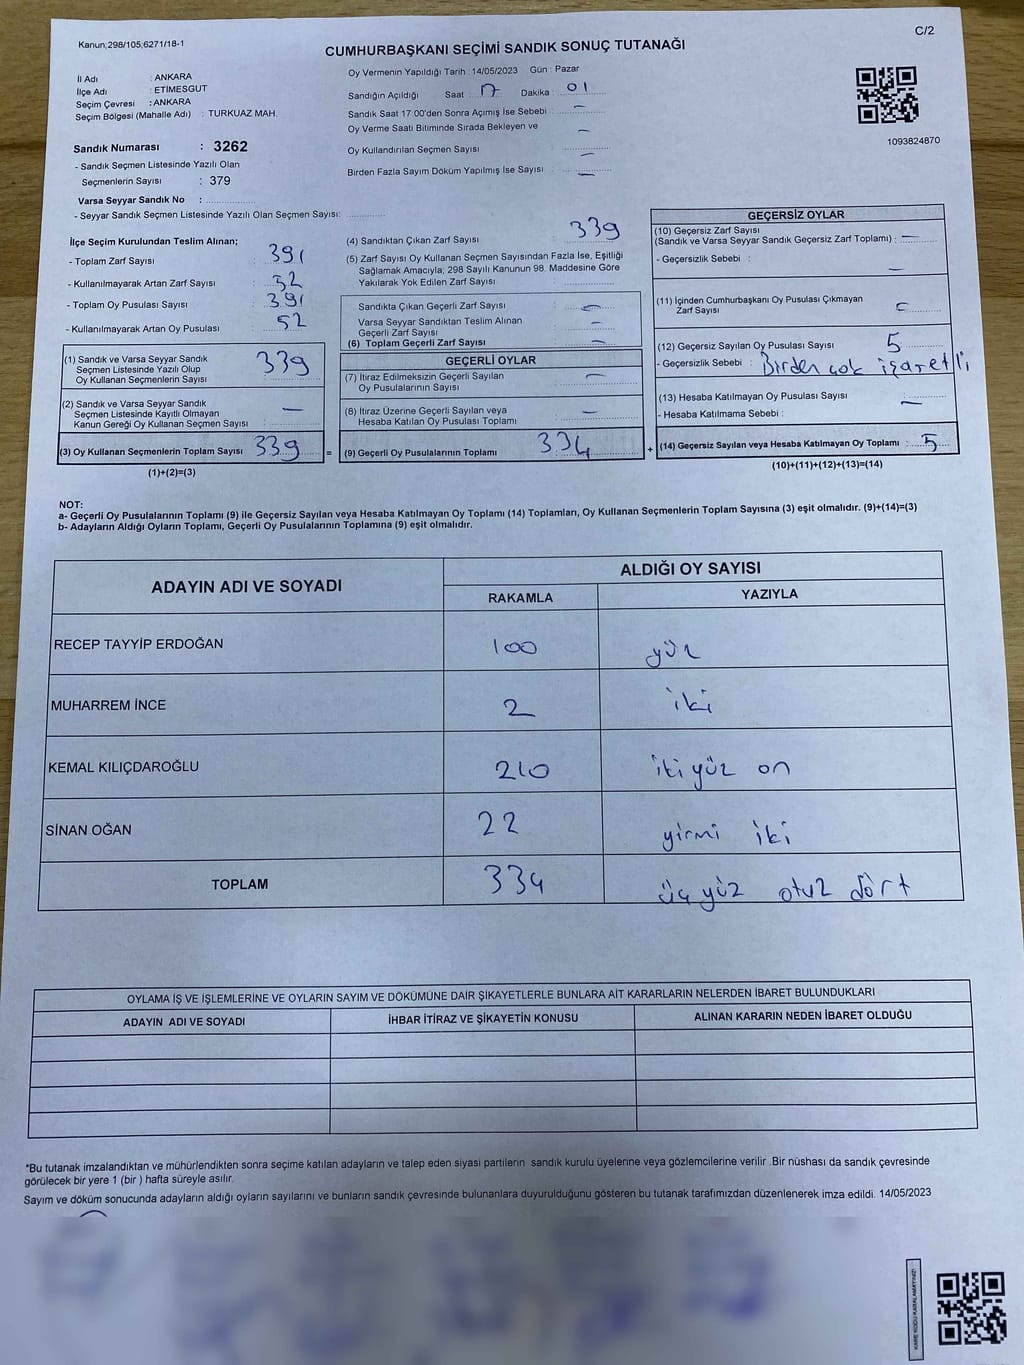 Kanun;298/105;6271/18-1
C/2
CUMHURBAŞKANI SEÇİMİ SANDIK SONUÇ TUTANAĞI
İl Adı : ANKARA
İlçe Adı : ETİMESGUT
Seçim Çevresi : ANKARA
Seçim Bölgesi (Mahalle Adı) : TURKUAZ MAH.
Sandık Numarası : 3262
- Sandık Seçmen Listesinde Yazılı Olan
Seçmenlerin Sayısı : 379
Varsa Seyyar Sandık No :
- Seyyar Sandık Seçmen Listesinde Yazılı Olan Seçmen Sayısı:
Oy Vermenin Yapıldığı Tarih : 14/05/2023 Gün : Pazar
Sandığın Açıldığı Saat 17 Dakika 01
Sandık Saat 17:00'den Sonra Açımış İse Sebebi : —
Oy Verme Saati Bitiminde Sırada Bekleyen ve —
Oy Kullandırılan Seçmen Sayısı —
Birden Fazla Sayım Döküm Yapılmış İse Sayısı —
1093824870
İlçe Seçim Kurulundan Teslim Alınan;
- Toplam Zarf Sayısı : 391
- Kullanılmayarak Artan Zarf Sayısı : 52
- Toplam Oy Pusulası Sayısı : 391
- Kullanılmayarak Artan Oy Pusulası : 52
(1) Sandık ve Varsa Seyyar Sandık
Seçmen Listesinde Yazılı Olup
Oy Kullanan Seçmenlerin Sayısı : 339
(2) Sandık ve Varsa Seyyar Sandık
Seçmen Listesinde Kayıtlı Olmayan
Kanun Gereği Oy Kullanan Seçmen Sayısı : —
(3) Oy Kullanan Seçmenlerin Toplam Sayısı : 339 =
(1)+(2)=(3)
(4) Sandıktan Çıkan Zarf Sayısı : 339
(5) Zarf Sayısı Oy Kullanan Seçmen Sayısından Fazla İse, Eşitliği
Sağlamak Amacıyla; 298 Sayılı Kanunun 98. Maddesine Göre
Yakılarak Yok Edilen Zarf Sayısı :
Sandıkta Çıkan Geçerli Zarf Sayısı : —
Varsa Seyyar Sandıktan Teslim Alınan
Geçerli Zarf Sayısı : —
(6) Toplam Geçerli Zarf Sayısı : —
GEÇERLİ OYLAR
(7) İtiraz Edilmeksizin Geçerli Sayılan
Oy Pusulalarının Sayısı : —
(8) İtiraz Üzerine Geçerli Sayılan veya
Hesaba Katılan Oy Pusulası Toplamı : —
(9) Geçerli Oy Pusulalarının Toplamı : 334 +
GEÇERSİZ OYLAR
(10) Geçersiz Zarf Sayısı
(Sandık ve Varsa Seyyar Sandık Geçersiz Zarf Toplamı) : —
- Geçersizlik Sebebi : —
(11) İçinden Cumhurbaşkanı Oy Pusulası Çıkmayan
Zarf Sayısı : —
(12) Geçersiz Sayılan Oy Pusulası Sayısı : 5
- Geçersizlik Sebebi : Birden çok işaretli
(13) Hesaba Katılmayan Oy Pusulası Sayısı : —
- Hesaba Katılmama Sebebi :
(14) Geçersiz Sayılan veya Hesaba Katılmayan Oy Toplamı : 5
(10)+(11)+(12)+(13)=(14)
NOT:
a- Geçerli Oy Pusulalarının Toplamı (9) ile Geçersiz Sayılan veya Hesaba Katılmayan Oy Toplamı (14) Toplamları, Oy Kullanan Seçmenlerin Toplam Sayısına (3) eşit olmalıdır. (9)+(14)=(3)
b- Adayların Aldığı Oyların Toplamı, Geçerli Oy Pusulalarının Toplamına (9) eşit olmalıdır.
ADAYIN ADI VE SOYADI ALDIĞI OY SAYISI
RAKAMLA YAZIYLA
RECEP TAYYİP ERDOĞAN 100 yüz
MUHARREM İNCE 2 iki
KEMAL KILIÇDAROĞLU 210 iki yüz on
SİNAN OĞAN 22 yirmi iki
TOPLAM 334 üç yüz otuz dört
OYLAMA İŞ VE İŞLEMLERİNE VE OYLARIN SAYIM VE DÖKÜMÜNE DAİR ŞİKAYETLERLE BUNLARA AİT KARARLARIN NELERDEN İBARET BULUNDUKLARI
ADAYIN ADI VE SOYADI İHBAR İTİRAZ VE ŞİKAYETİN KONUSU ALINAN KARARIN NEDEN İBARET OLDUĞU
*Bu tutanak imzalandıktan ve mühürlendikten sonra seçime katılan adayların ve talep eden siyasi partilerin sandık kurulu üyelerine veya gözlemcilerine verilir .Bir nüshası da sandık çevresinde
görülecek bir yere 1 (bir ) hafta süreyle asılır.
Sayım ve döküm sonucunda adayların aldığı oyların sayılarını ve bunların sandık çevresinde bulunanlara duyurulduğunu gösteren bu tutanak tarafımızdan düzenlenerek imza edildi. 14/05/2023